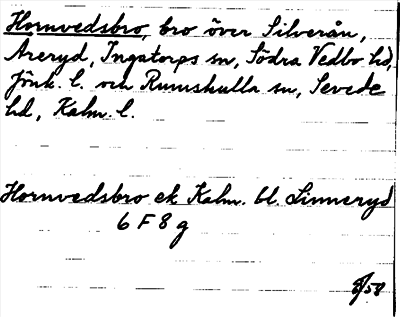 Hornvedsbro, bro över Silverån,
Areryd, Ingatorps sn, Södra Vedbo hd,
Jönk. l. och Rumskulla sn, Sevede
hd, Kalm. l.
Hornvedsbro ek Kalm. bl. Linneryd
6 F 8 g
/58